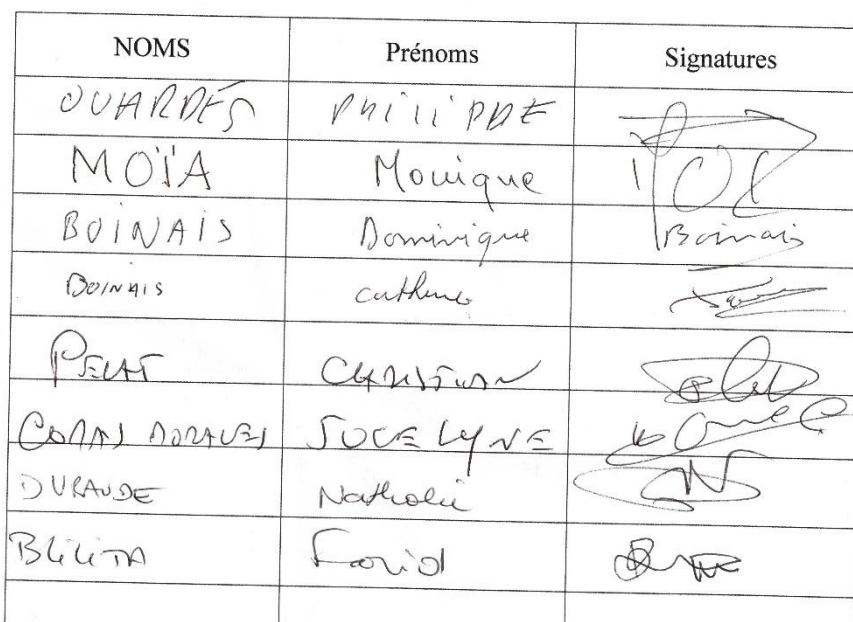 NOMS Prénoms Signatures
OUARDÉS PHILIPPE
MOÏA Monique
BOINAIS Dominique Boinais
BOINAIS Catherine
PELAT CHRISTIAN
JOCELYNE
DURAUDE Nathalie
BLILITA Farid